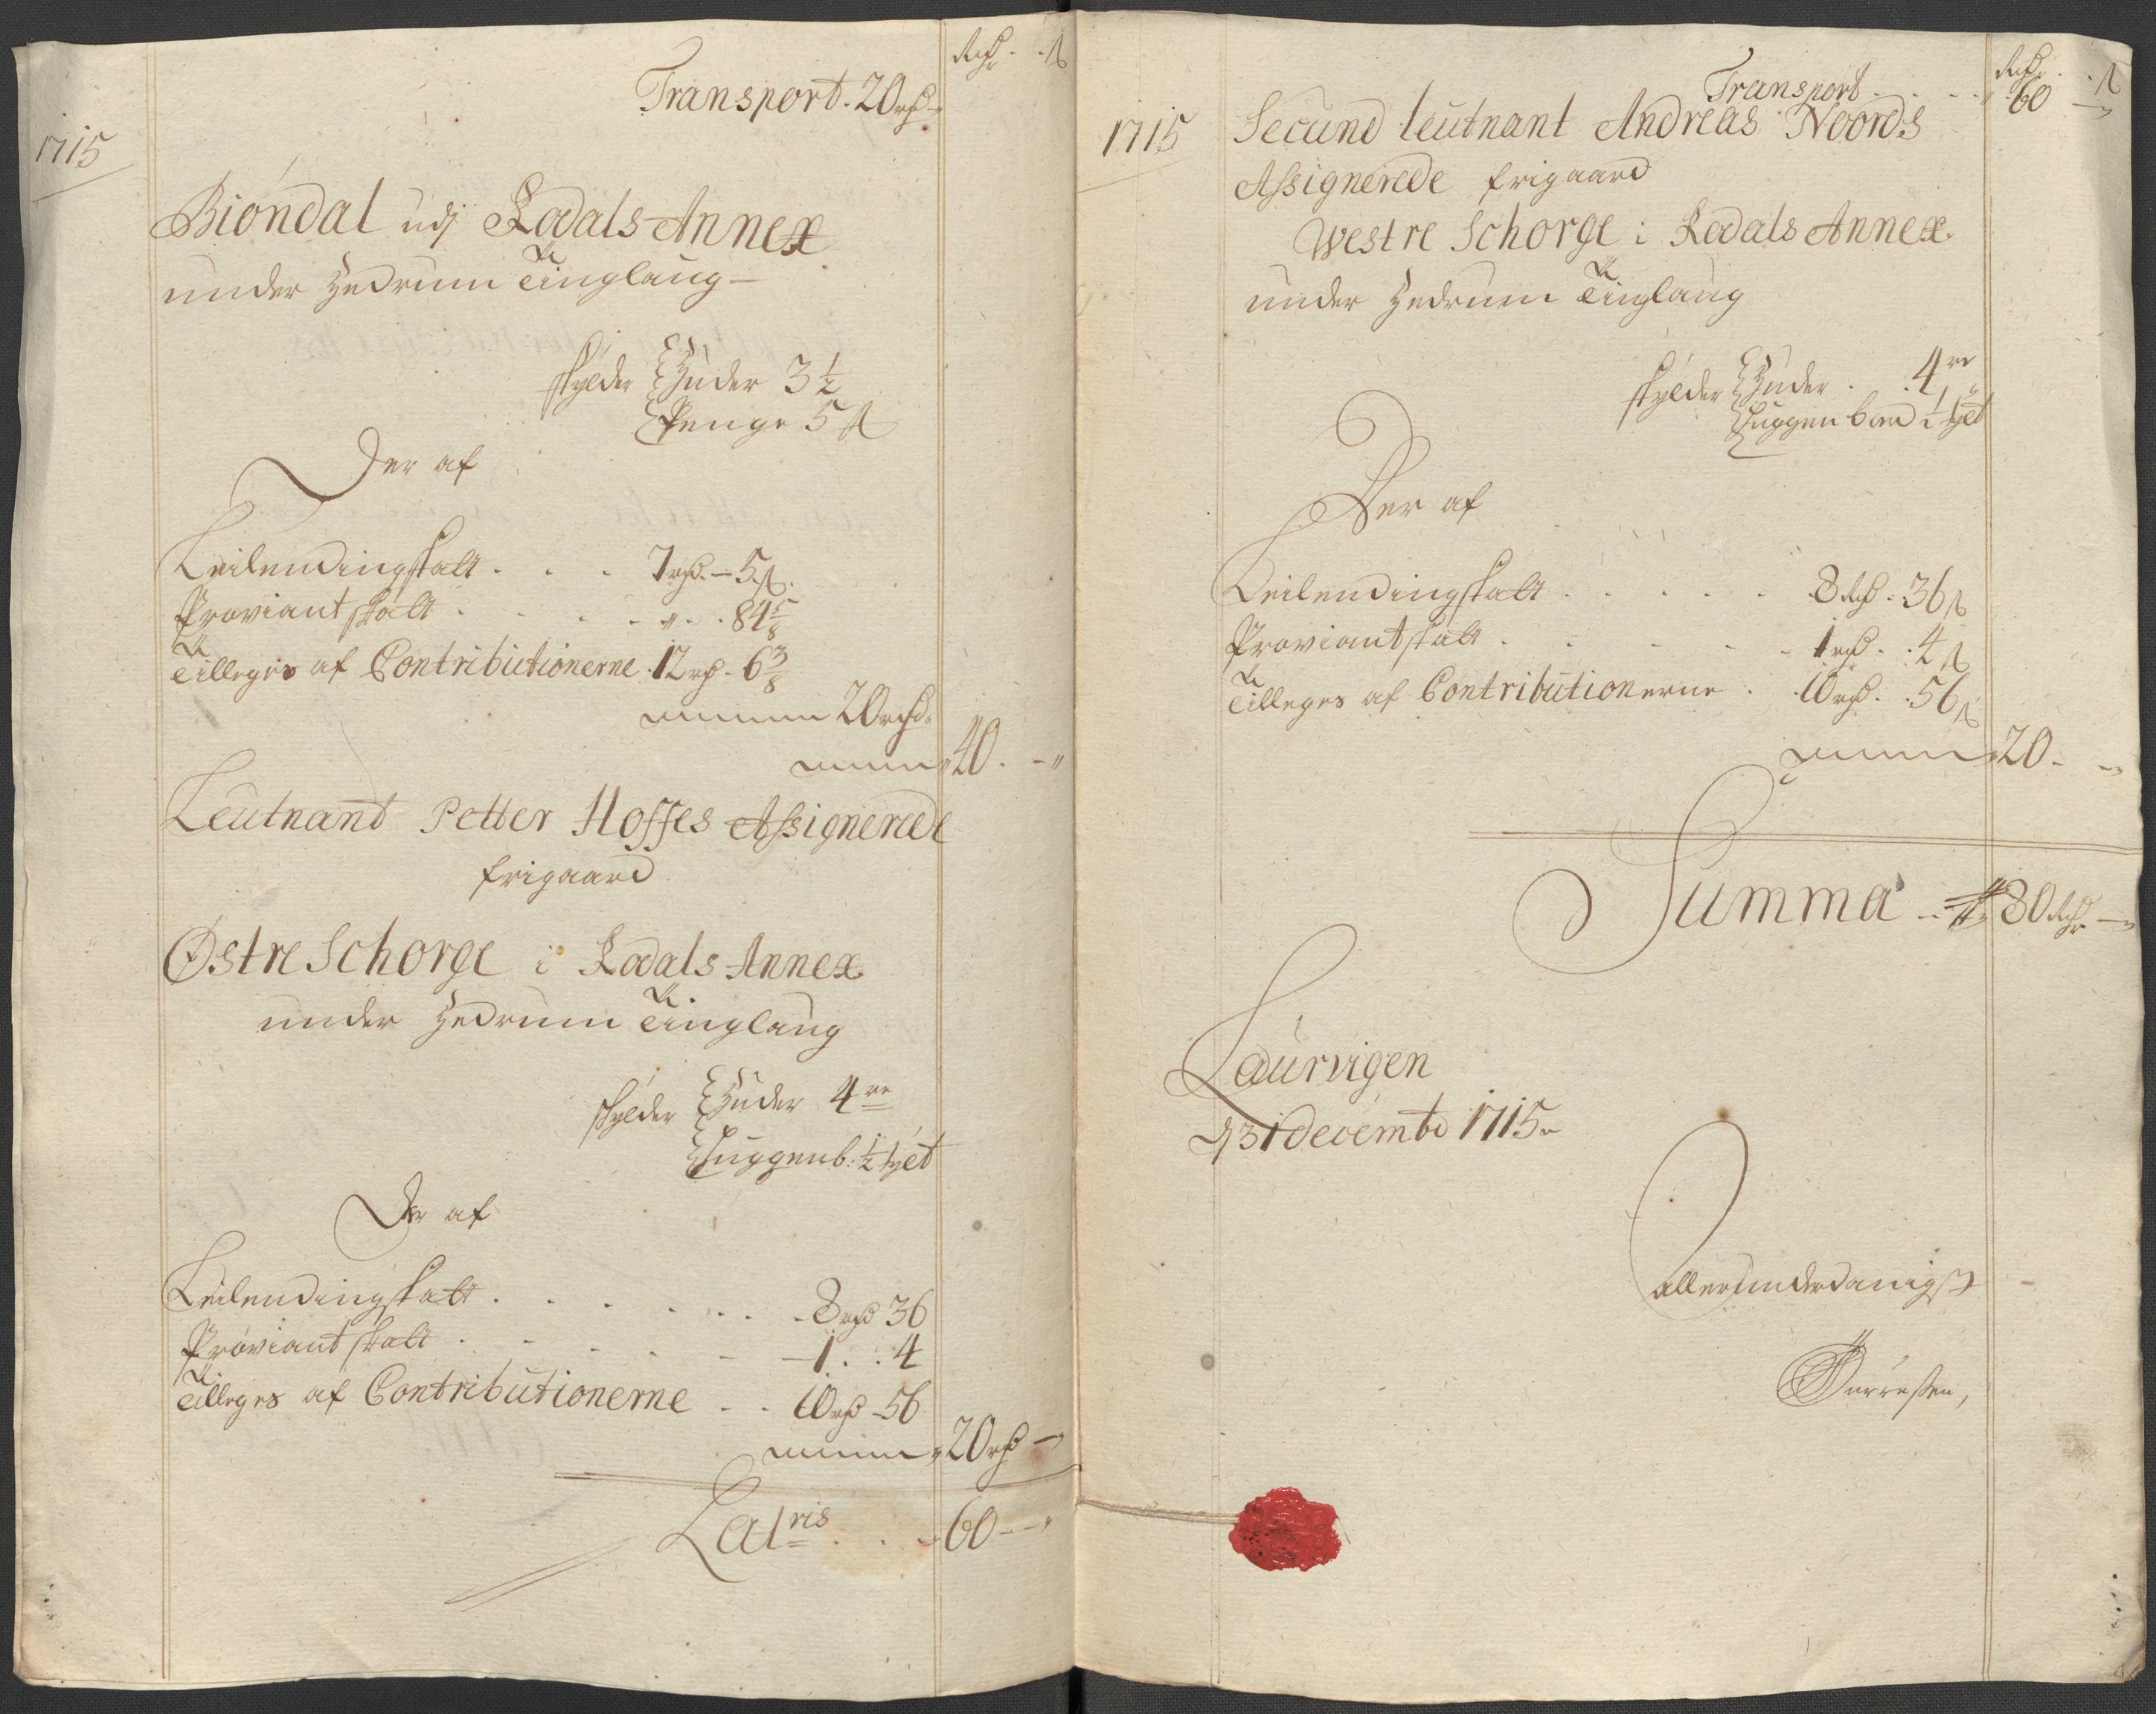 Rdr. ß
Transport. 20 rd
1715
Biøndal udj Lodals Annex
under Hedrum Tinglaug
skylder Huder 3 1/2
Penge 5 ß
Der af
Leilendingskatt . . . 7 rd. - 5 ß.
Proviantskatt . . . . " . 84 5/8
Tilleges af Contributionerne . 12 rd - 6 3/8
20 rd
40. - "
Leutnant Petter Hoffes Assignerede
frigaard
Østre Schorge i Lodals Annex
under Hedrum Tinglaug
skylder Huder 4re
Tuggenb: 1/2 t
Der af
Leilendingskatt . . . . . . 8 rd 36
Proviantskatt . . . . - 1 . . 4
Tilleges af Contributionerne . . 10 rd - 56
20 rd -
Latris . . . 60 - - "
Rdr. ß
Transport . . . . 60 -
1715
Secund leutnant Andreas Noords
Assignerede frigaard
Westre Schorge i Lodals Annex
under Hedrum Tinglaug
skylder Huder . . 4re
Der af
Leilendingskatt . . . . . 8 Rd. 36 ß
Proviantskatt . . . . . 1 rd. . 4 ß
Tilleges af Contributionerne . 10 rd. . 56 ß
20 - -
Summa . . 80 Rdr -
Laurvigen
d 31 decembr 1715
allerunderdanigst